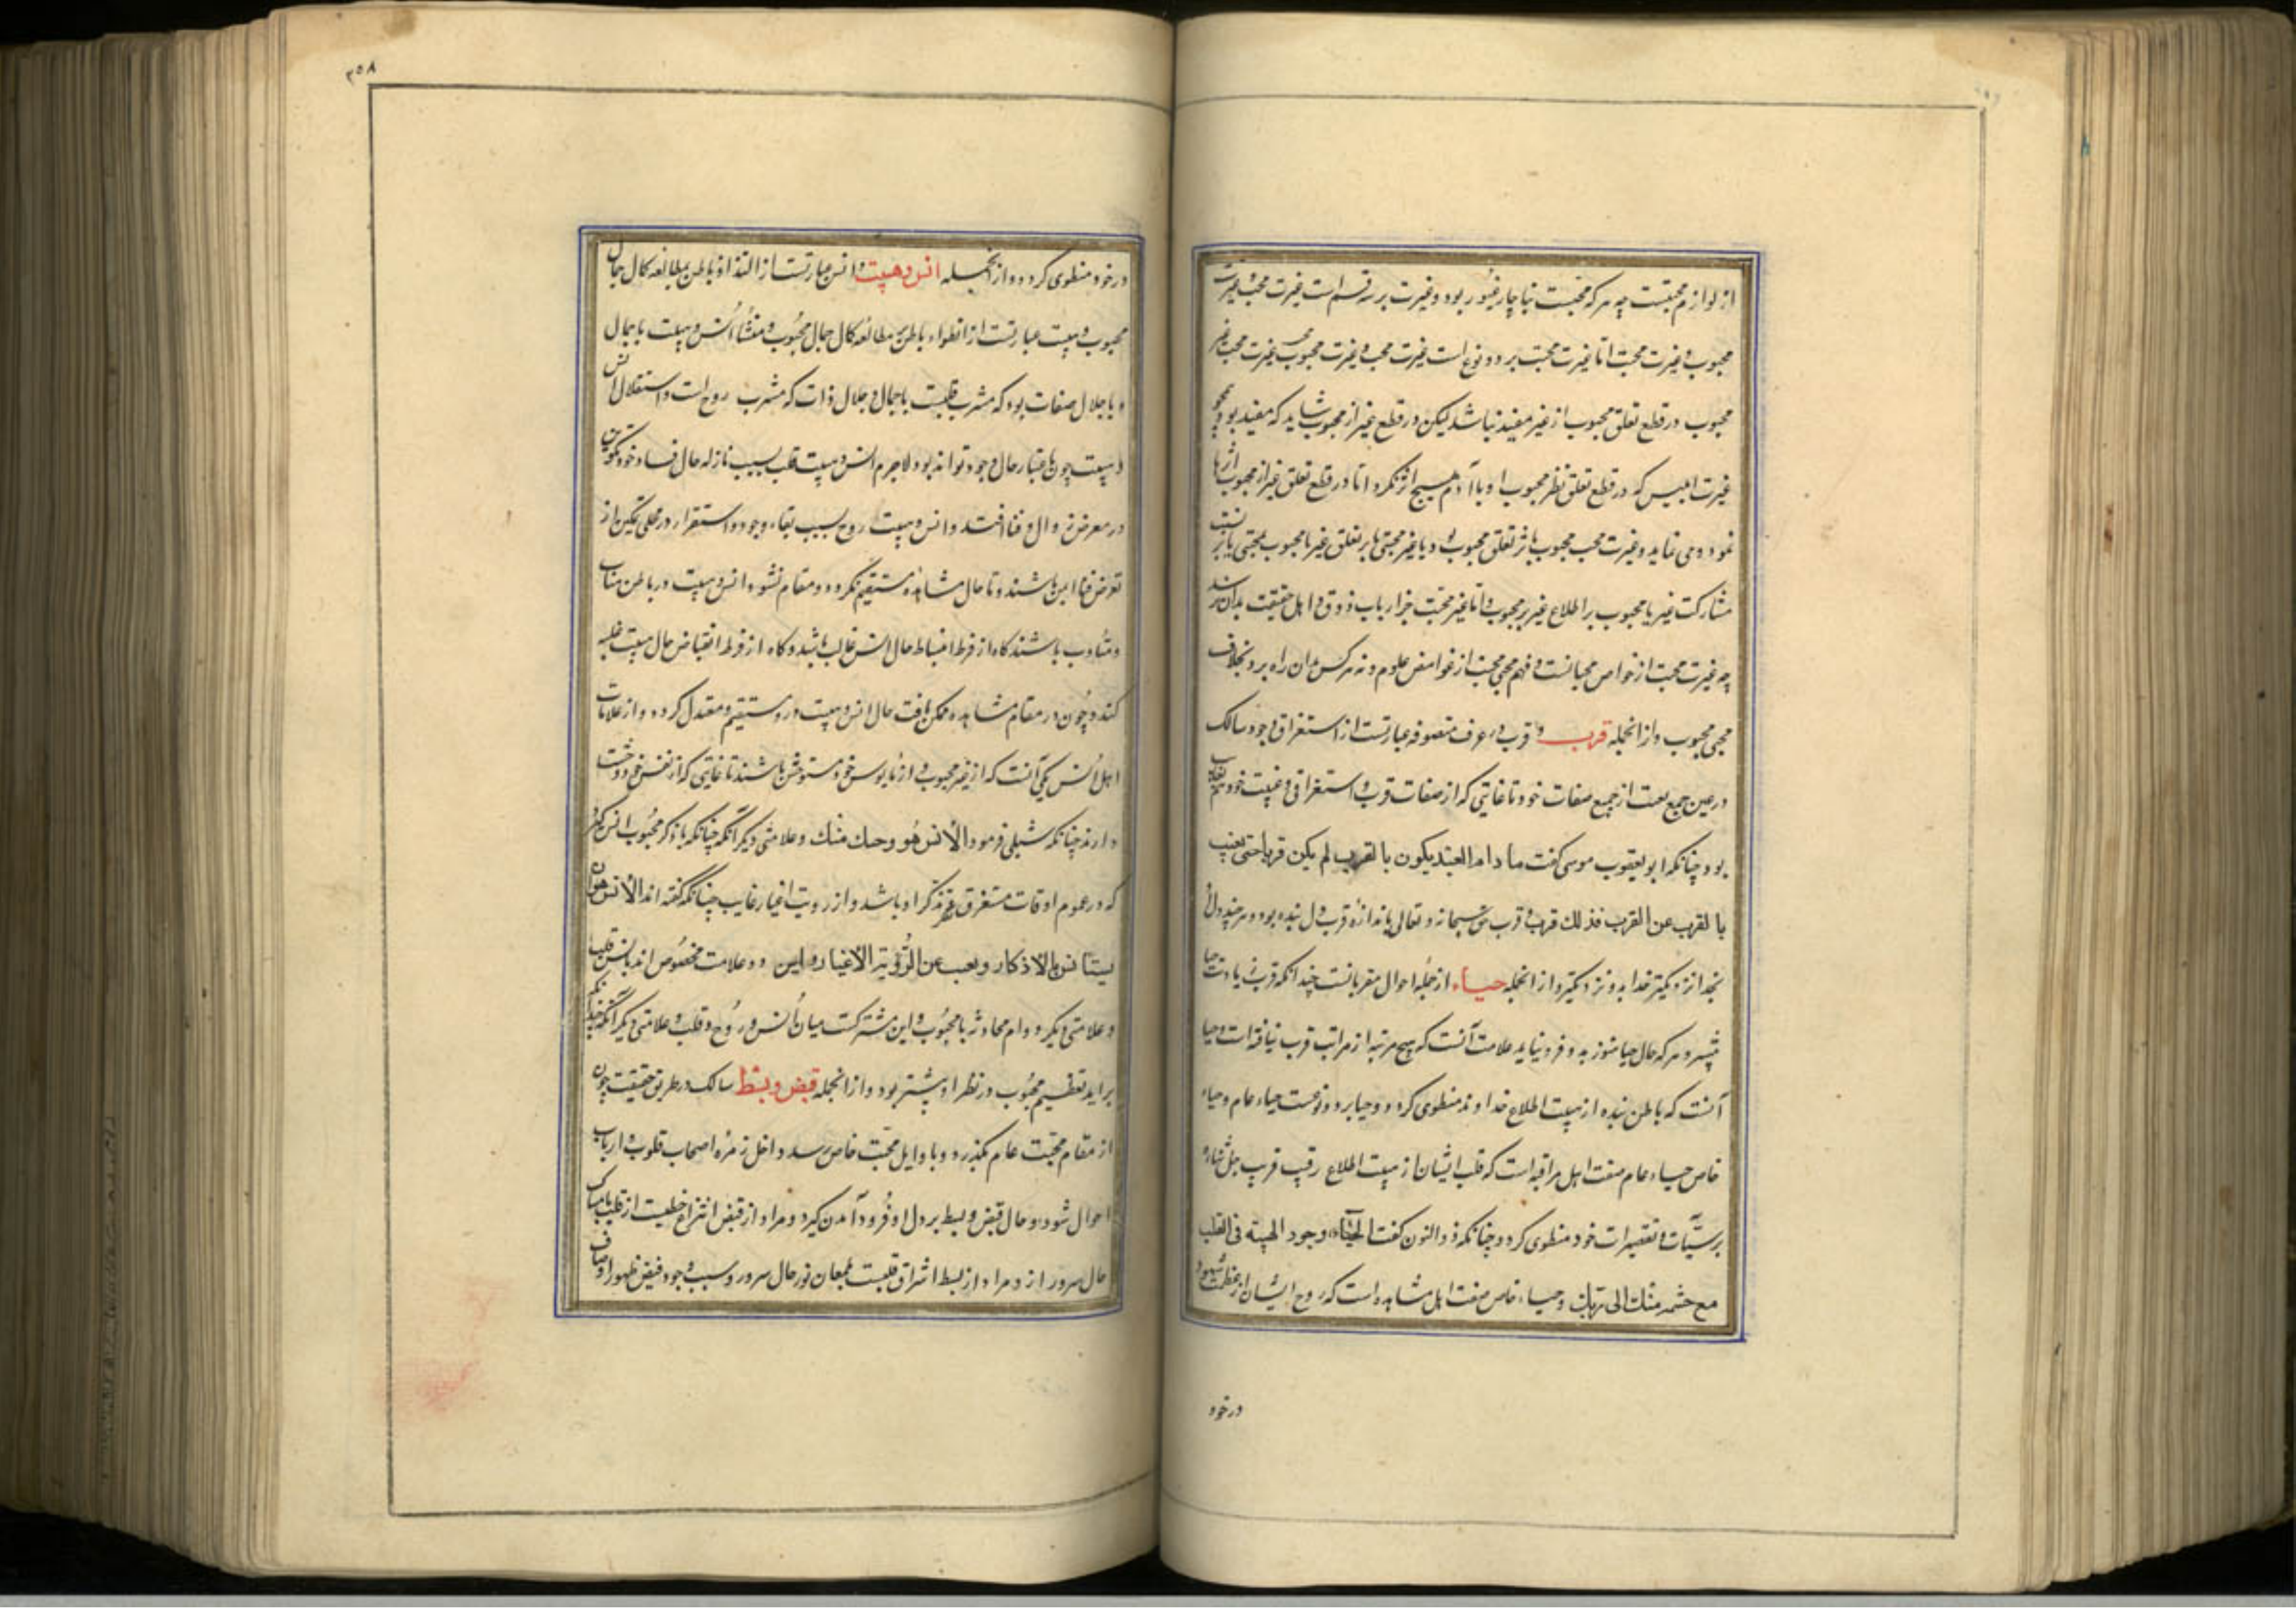 از لوازم محبتست چه هر که محبست ناچار غیور بود و غیرت بر سه قسم است غیرت محب و غیرت
محبوب و غیرت محبت اما غیرت محبت بر دو نوع است غیرت محب و غیرت محبوب غیرت محب غیر
محبوب در قطع تعلق محبوب از غیر مفید نباشد لیکن در قطع غیر از محبوب شاید که مفید بود چو
غیرت ابلیس که در قطع تعلق نظر محبوب او با آدم هیچ اثر نکرد اما در قطع تعلق غیر از محبوب اثرها
نمود و می نماید و غیرت محب محبوب باثر تعلق محبوب بود با غیر محبتی یا بر تعلق غیر با محبوب محبتی یا بر نسبت
مشارکت غیر با محبوب بر اطلاع غیر بر محبوب و اما غیر محبت جز ارباب ذوق و اهل حقیقت بدان نرسند
چه غیرت محبت از خواص محبانست و فهم محبی محبت از غوامض علوم و نه هر کس بدان راه برد بخلاف
محبی محبوب و از انجمله قرب و قرب در عرف متصوفه عبارتست از استغراق وجود سالک
در عین جمع بغیبت از جمیع صفات خود تا غایتی که از صفات قرب و استغراق و غیبت خود هم غایب
بود چنانکه ابو یعقوب سوسی گفت ما دام العبد یکون بالقرب لم یکن قربا حتی یغیب
بالقرب عن القرب فذلك قرب و قرب حق سبحانه و تعالی باندازه قرب دل بنده بود و هر چند دل
بخدا نزدیکتر خدا بدو نزدیکتر و از انجمله حیاء از جمله احوال مقربانست چندانکه قرب زیادت حیا
بیشتر و هر که حال حیا هنوز بدو فرو نیاید علامت آنست که هیچ مرتبه از مراتب قرب نیافته است و حیا
آنست که باطن بنده از هیبت اطلاع خداوند منطوی گردد و حیا بر دو نوعست حیاء عام و حیاء
خاص حیاء عام صفت اهل مراقبه است که قلب ایشان از هیبت اطلاع رقیب قریب جل ثناؤه
بر سیّآت و تقصیرات خود منطوی گردد چنانکه ذو النون گفت الحیآء وجود الهیبة فی القلب
مع حشمة منك الی ربك و حیاء خاص صفت اهل مشاهده است که روح ایشان از عظمت شهود
در خود
٣٥٨
در خود منطوی گردد و از انجمله انس و هیبت و انس عبارتست از التذاذ باطن بمطالعه کمال جمال
محبوب و هیبت عبارتست از انطواء باطن بمطالعه کمال جلال محبوب و منشأ انس و هیبت یا جمال
و یا جلال صفات بود که مشرب قلبست یا جمال و جلال ذات که مشرب روح است و استقلال انس
و هیبت چون باعتبار حال و وجود تواند بود لاجرم انس و هیبت قلب بسبب نازله حال فساد خود تکون
در معرض زوال و فنا افتند و انس و هیبت روح بسبب بقاء وجود و استقرار در محل تمکین از
تعرض فنا ایمن باشند و تا حال مشاهده مستقیم نگردد و مقام نشود انس و هیبت در باطن متناب
و متناوب باشند گاه از فرط انبساط حال انس غالب باشد و گاه از فرط انقباض حال هیبت غلبه
کند و چون در مقام مشاهده تمکن یافت حال انس و هیبت درو مستقیم و معتدل گردد و از علامات
اهل انس یکی آنست که از غیر محبوب و از نامانوس خود مستوحش باشند تا غایتی که از نفس خود وحشت
دارند چنانکه شبلی فرمود الأنس هو وحشتك منك و علامتی دیگر آنکه چنانکه با ذکر محبوب انس گیرد
که در عموم اوقات مستغرق ذکر او باشد و از رویت اغیار غایب چنانکه گفته اند الأنس هو ان
یستأنس بالاذکار و یغیب عن الرؤیة الاغیار و این دو علامت مخصوص اند بانس قلب
و علامتی دیگر دوام محادثه با محبوب و این مشترکست میان انس روح و قلب و علامتی دیگر آنکه چندانکه
براید تعظیم محبوب در نظر او بیشتر بود و از انجمله قبض و بسط سالک در طریق حقیقت چون
از مقام محبت عام بگذرد و باوایل محبت خاص رسد داخل زمره اصحاب قلوب و ارباب
احوال شود و حال قبض و بسط بر دل او فرود آمدن گیرد و مراد از قبض انتزاع حظست از قلب بامساک
حال سرور ازو مراد از بسط اشراق قلبست بلمعان نور حال سرور و سبب وجود قبض ظهور اوصاف